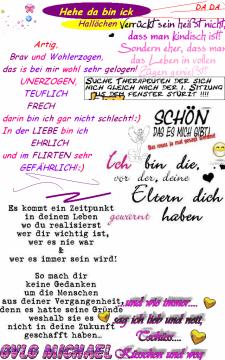 DA DA
Hehe da bin ick
Hallöchen
Verrückt sein heißt nicht,
dass man kindisch ist.
Sondern eher, dass man
das Leben in vollen
Zügen genießt!
Artig,
Brav und Wohlerzogen,
das is bei mir wohl sehr gelogen!
UNERZOGEN,
TEUFLICH
FRECH
darin bin ich gar nicht schlecht!:)
In der LIEBE bin ich
EHRLICH
und im FLIRTEN sehr
GEFÄHRLICH!:)
SUCHE THERAPEUTEN DER SICH
NICH GLEICH NACH DER 1. SITZUNG
AUS DEM FENSTER STÜRZT !!!!
SCHÖN
DAS ES MICH GIBT!
Ich bin die,
vor der, deine
Eltern dich
gewarnt haben
Es kommt ein Zeitpunkt
in deinem Leben
wo du realisierst
wer dir wichtig ist,
wer es nie war
&
wer es immer sein wird!
So mach dir
keine Gedanken
um die Menschen
aus deiner Vergangenheit,
denn es hatte seine Gründe
weshalb sie es
nicht in deine Zukunft
geschafft haben..
...und wie immer....
sag ich lieb und nett,
Tschüss....
Küsschen und weg
GVLG MICHAEL